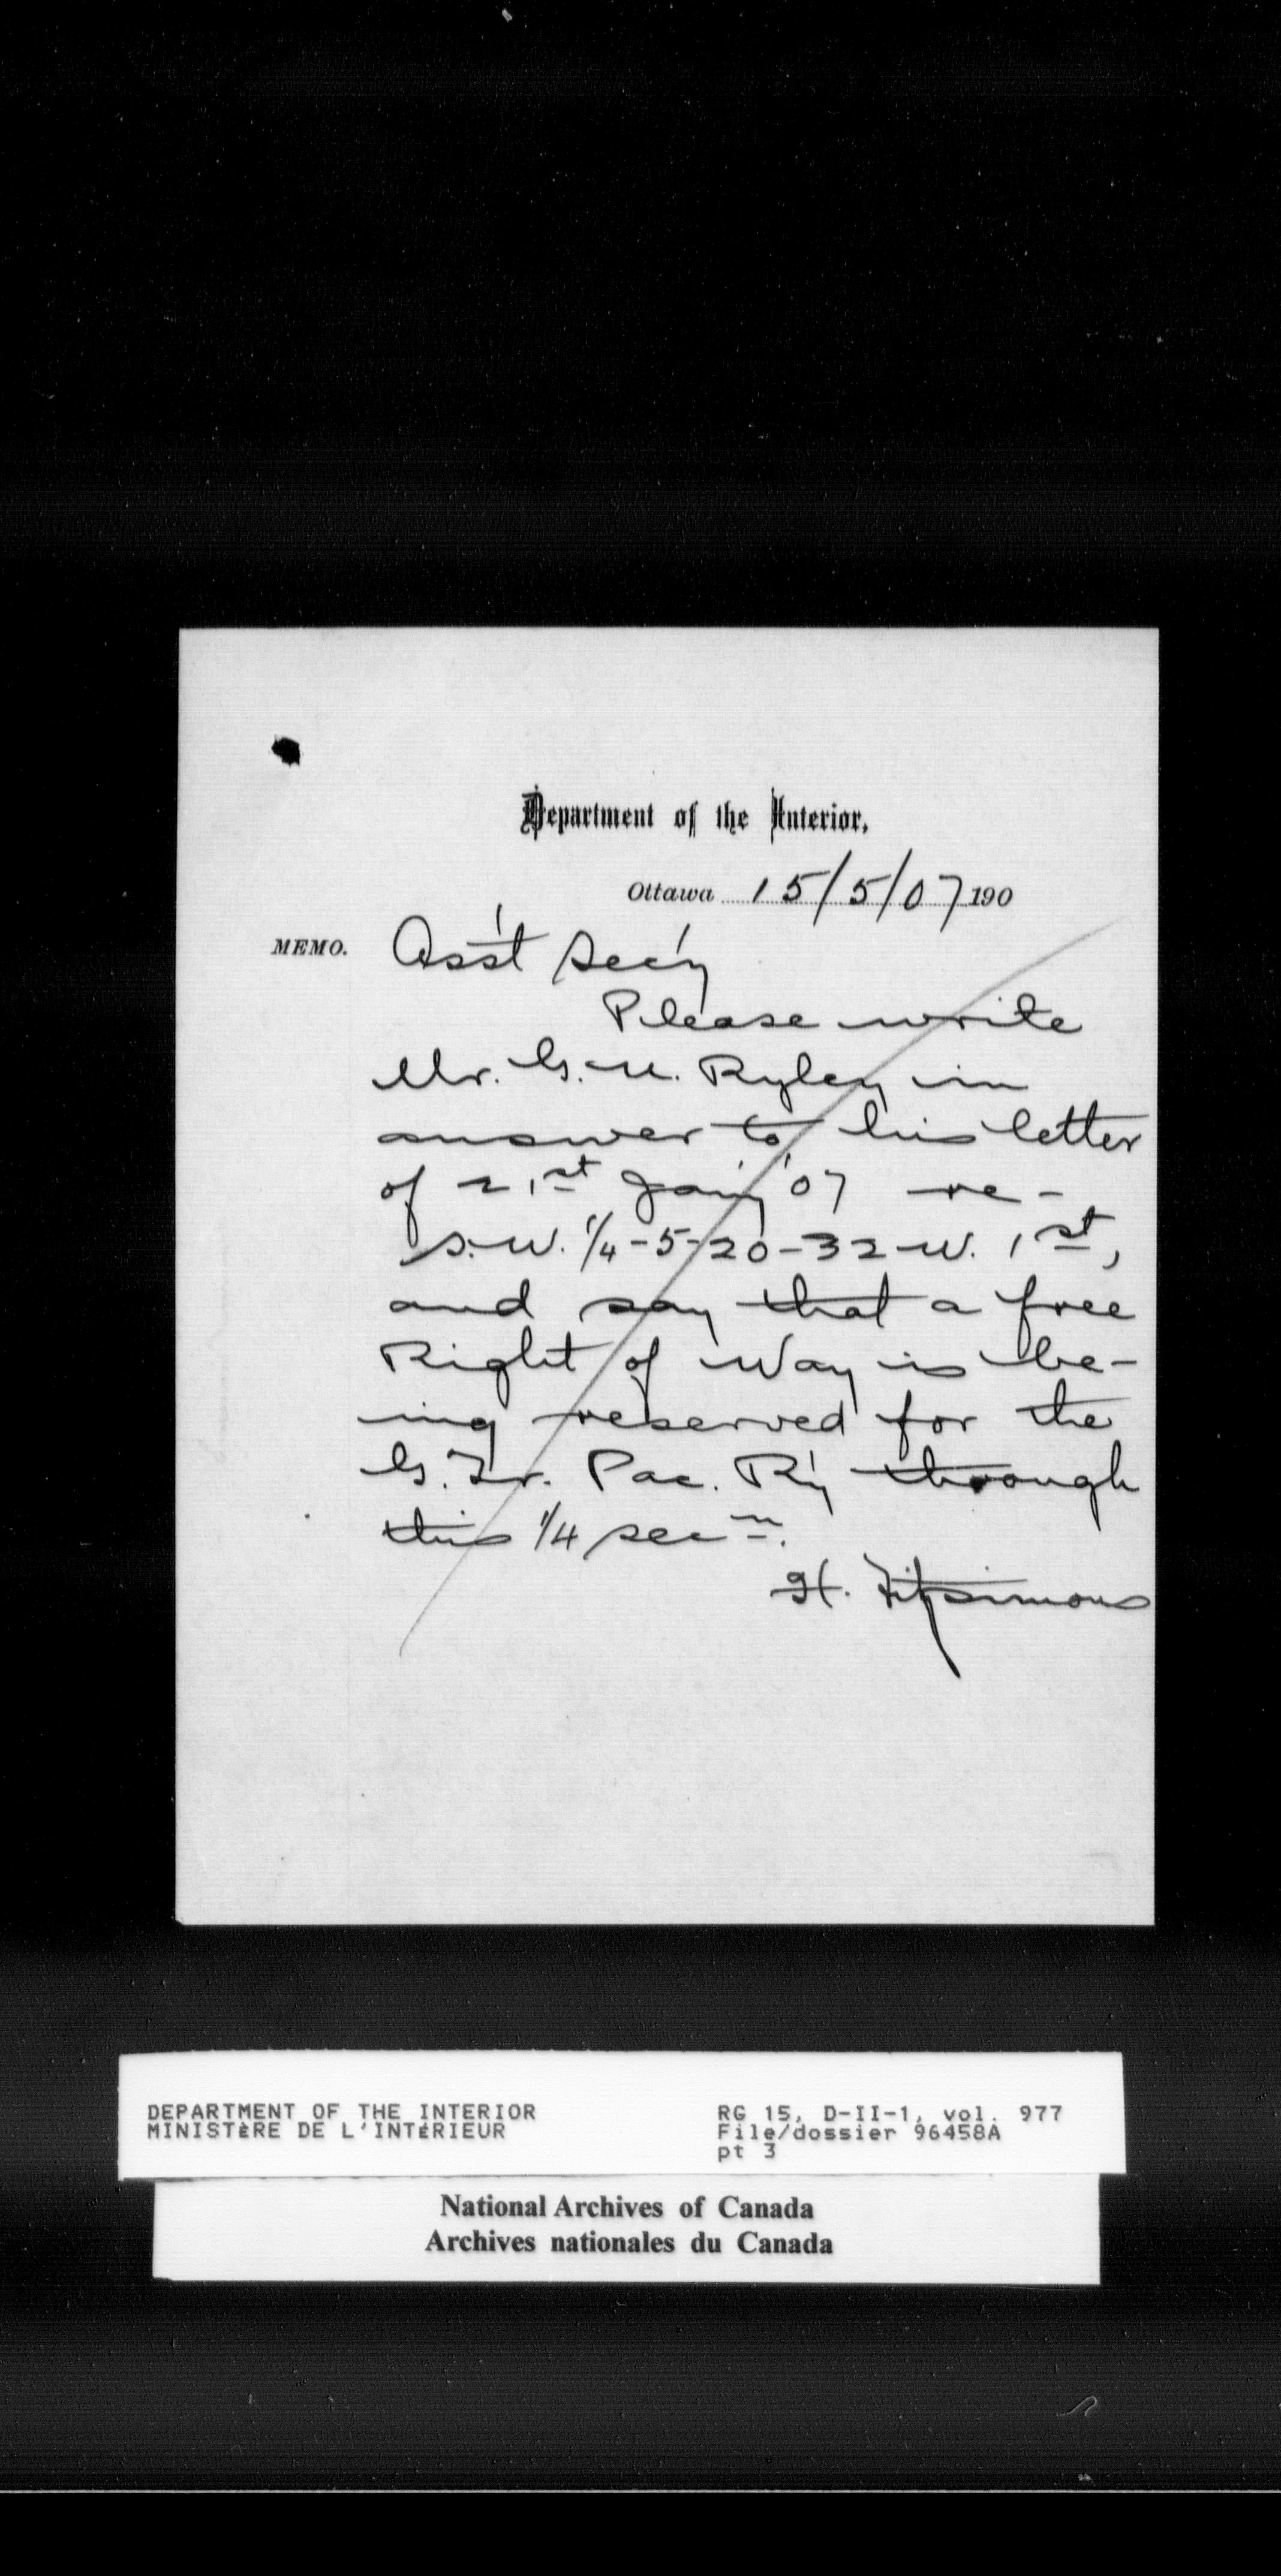 Department of the Interior,
Ottawa 15/5/07 190
MEMO.
Ass't Sec'y
Please write
Mr. G. U. Ryley in
answer to his letter
of 21st Jan'y '07 re-
S.W. 1/4-5-20-32-W. 1st,
and say that a free
Right of Way is be-
ing reserved for the
G. Tr. Pac. R'y through
this 1/4 secn.
H. Fitzsimons
DEPARTMENT OF THE INTERIOR
MINISTÈRE DE L'INTÉRIEUR
RG 15, D-II-1, vol. 977
File/dossier 96458A
pt 3
National Archives of Canada
Archives nationales du Canada